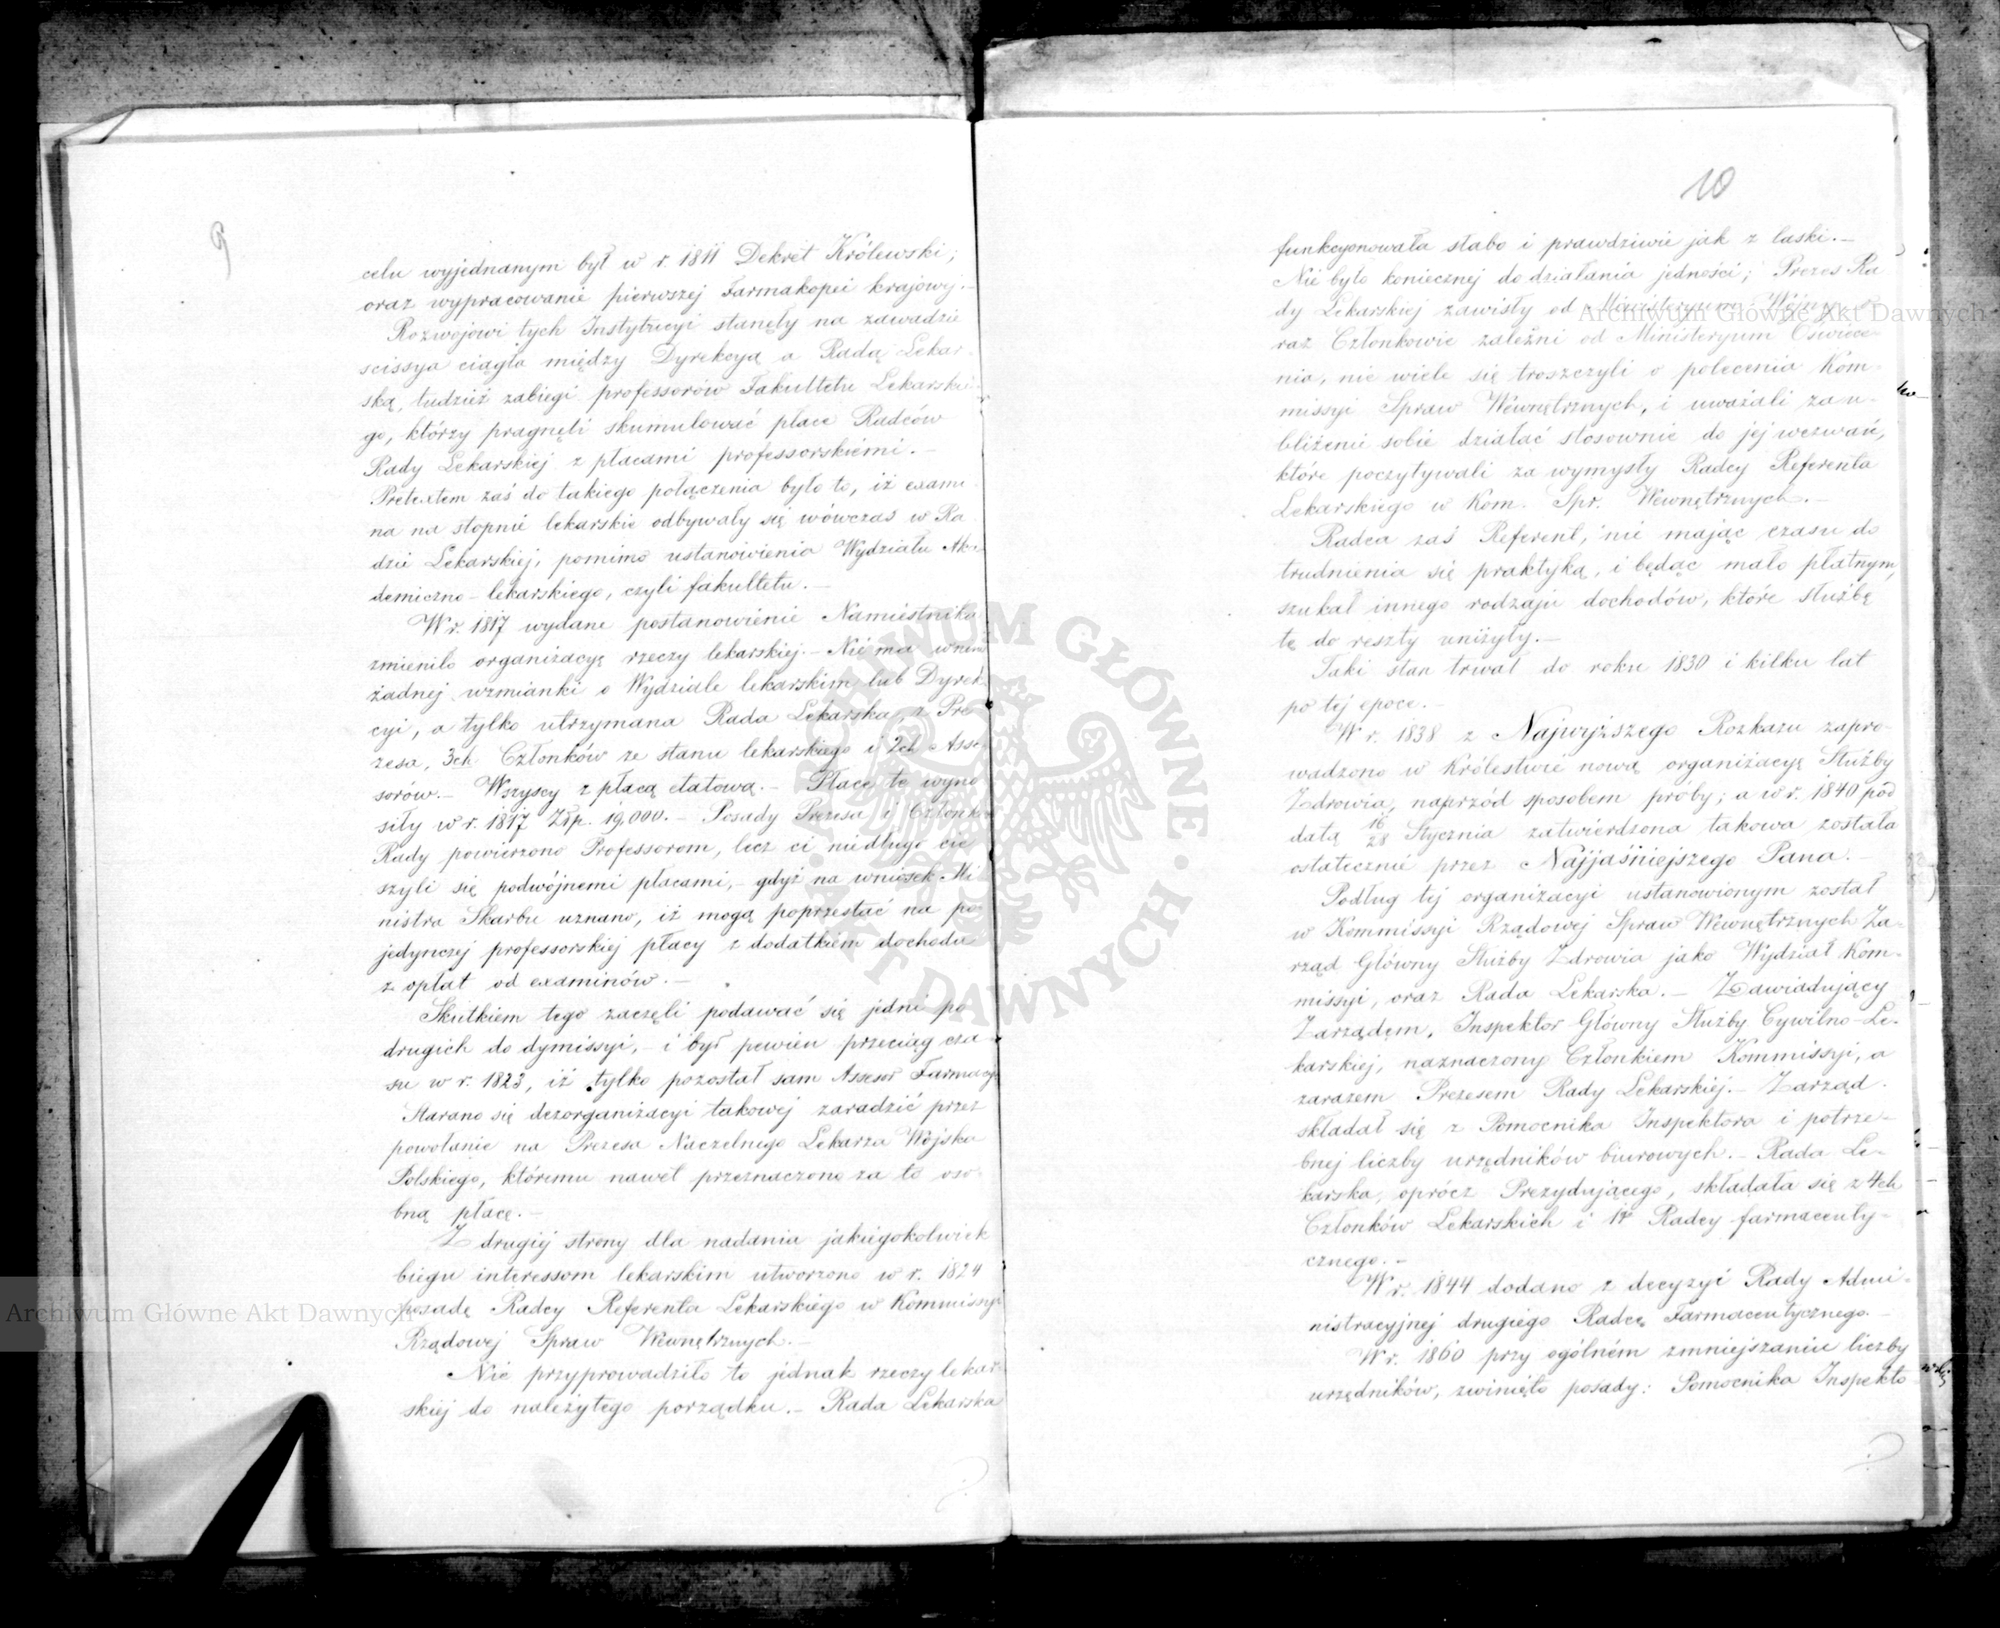 9
celu wyjednanym był w r. 1811 Dekret Królewski;
oraz wypracowanie pierwszej Farmakopei krajowej.—
Rozwojowi tych Instytucyi stanęły na zawadzie
scissya ciągła między Dyrekcyą a Radą Lekar-
ską, tudzież zabiegi professorów Fakultetu Lekarskie-
go, którzy pragnęli skumulować płace Radców
Rady Lekarskiej z płacami professorskiémi.—
Pretextem zaś do takiego połączenia było to, iż exami-
na na stopnie lekarskie odbywały się wówczas w Ra-
dzie Lekarskiej, pomimo ustanowienia Wydziału Aka-
demiczno-lekarskiego, czyli fakultetu.—
W r. 1817 wydane postanowienie Namiestnika
zmieniło organizacyę rzeczy lekarskiej.— Nie ma w niem
żadnej wzmianki o Wydziale lekarskim lub Dyrek-
cyi, a tylko utrzymana Rada Lekarska, z Pre-
zesa, 3ch Członków ze stanu lekarskiego i 2ch Asse-
sorów.— Wszyscy z płacą etatową.— Płace te wyno-
siły w r. 1817 Złp. 19,000.— Posady Prezesa i Członków
Rady powierzono Professorom, lecz ci niedługo cie-
szyli się podwójnemi płacami,— gdyż na wniosek Mi-
nistra Skarbu uznano, iż mogą poprzestać na po-
jedynczej professorskiej płacy z dodatkiem dochodu
z opłat od examinów.—
Skutkiem tego zaczęli podawać się jedni po
drugich do dymissyi,— i był pewien przeciąg cza-
su w r. 1823, iż tylko pozostał sam Assesor Farmacyi
Starano się dezorganizacyi takowej zaradzić przez
powołanie na Prezesa Naczelnego Lekarza Wojska
Polskiego, któremu nawet przeznaczono za to oso-
bną płacę.—
Z drugiej strony dla nadania jakiegokolwiek
biegu interessom lekarskim utworzono w r. 1824
posadę Radcy Referenta Lekarskiego w Kommissyi
Rządowej Spraw Wewnętrznych.—
Nie przyprowadziło to jednak rzeczy lekar-
skiej do należytego porządku.— Rada Lekarska
10
funkcyonowała słabo i prawdziwie jak z łaski.—
Nie było koniecznej do działania jedności; Prezes Ra
dy Lekarskiej zawisły od Ministeryum Wojny, o-
raz Członkowie zależni od Ministeryum Oświece-
nia, nie wiele się troszczyli o polecenia Kom-
missyi Spraw Wewnętrznych, i uważali za u-
bliżenie sobie działać stosownie do jej wezwań,
które poczytywali za wymysły Radcy Referenta
Lekarskiego w Kom. Spr. Wewnętrznych.—
Radca zaś Referent, nie mając czasu do
trudnienia się praktyką, i będąc mało płatnym,
szukał innego rodzaju dochodów, które służbę
tę do reszty uniżyły.—
Taki stan trwał do roku 1830 i kilku lat
po tej epoce.—
W r. 1838 z Najwyższego Rozkazu zapro-
wadzono w Królestwie nową organizacyę Służby
Zdrowia, naprzód sposobem próby; a w r. 1840 pod
datą 16/28 Stycznia zatwierdzona takowa została
ostatecznie przez Najjaśniejszego Pana.—
Podług tej organizacyi ustanowionym został
w Kommissyi Rządowej Spraw Wewnętrznych Za-
rząd Główny Służby Zdrowia jako Wydział Kom-
missyi, oraz Rada Lekarska.— Zawiadujący
Zarządem, Inspektor Główny Służby Cywilno-Le-
karskiej, naznaczony Członkiem Kommissyi, a
zarazem Prezesem Rady Lekarskiej.— Zarząd
składał się z Pomocnika Inspektora i potrze-
bnej liczby urzędników biurowych.— Rada Le-
karska, oprócz Prezydującego, składała się z 4ch
Członków Lekarskich i 1º Radcy farmaceuty-
cznego.—
W r. 1844 dodano z decyzyi Rady Admi-
nistracyjnej drugiego Radcę Farmaceutycznego.—
W r. 1860 przy ogólném zmniejszaniu liczby
urzędników, zwinięto posady: Pomocnika Inspekto
Archiwum Główne Akt Dawnych
Archiwum Główne Akt Dawnych
ARCHIWUM GŁÓWNE AKT DAWNYCH